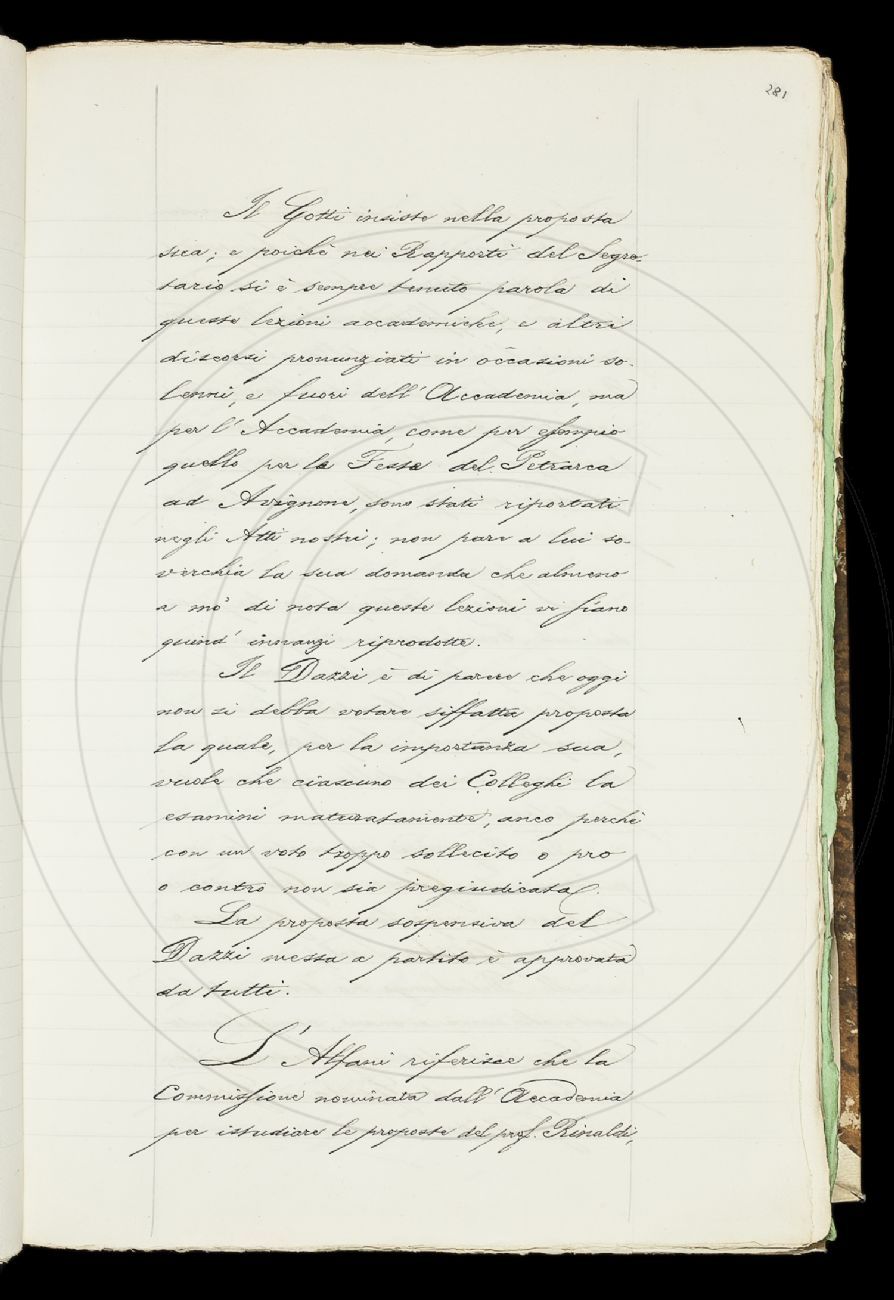 281
Il Gotti insiste nella proposta
sua; e poichè nei Rapporti del Segre-
tario si è sempre tenuto parola di
queste lezioni accademiche, e altri
discorsi pronunziati in occasioni so-
lenni, e fuori dell'Accademia, ma
per l'Accademia, come per esempio
quello per le Feste del Petrarca
ad Avignone, sono stati riportati
negli Atti nostri; non pare a lui so-
verchia la sua domanda che almeno
a mo' di nota queste lezioni vi siano
quind' innanzi riprodotte.
Il Dazzi è di parere che oggi
non si debba votare siffatta proposta
la quale, per la importanza sua,
vuole che ciascuno dei Colleghi la
esamini maturatamente, anco perchè
con un voto troppo sollecito o pro
o contro non sia pregiudicata.
La proposta sospensiva del
Dazzi messa a partito è approvata
da tutti.
L'Alfani riferisce che la
Commissione nominata dall'Accademia
per istudiare le proposte del prof. Rinaldi,